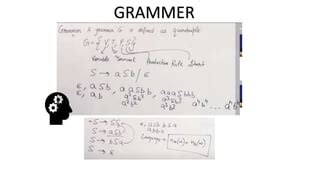 GRAMMER
Grammar: A grammar G is defined as quadruple
G = {V, T, P, S}
Variable Terminal Production Rule Start
S → aSb / ε
ε, aSb, aaSbb, aaaSbbb
ε, ab, a²Sb², a³Sb³
a²b² a³b³ a⁴b⁴ ... aⁿbⁿ
S → SS
S → aSb
S → bSa
S → ε
Language = na(w) = nb(w)